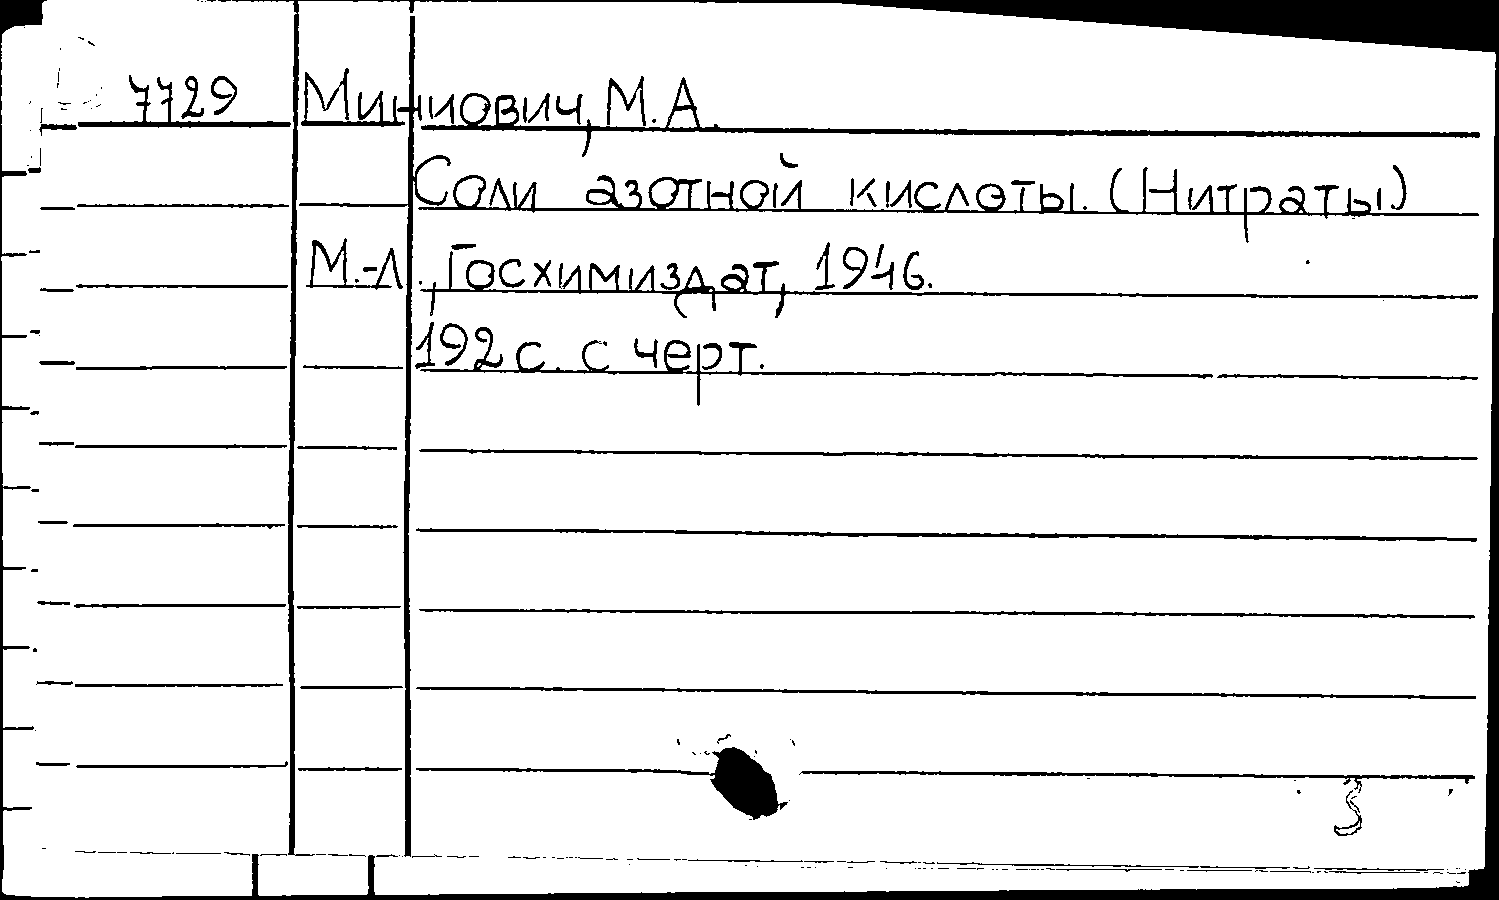 7729 Миниович, М.А.
Соли азотной кислоты. (Нитраты)
М.-Л., Госхимиздат, 1946.
192 с. с черт.
3